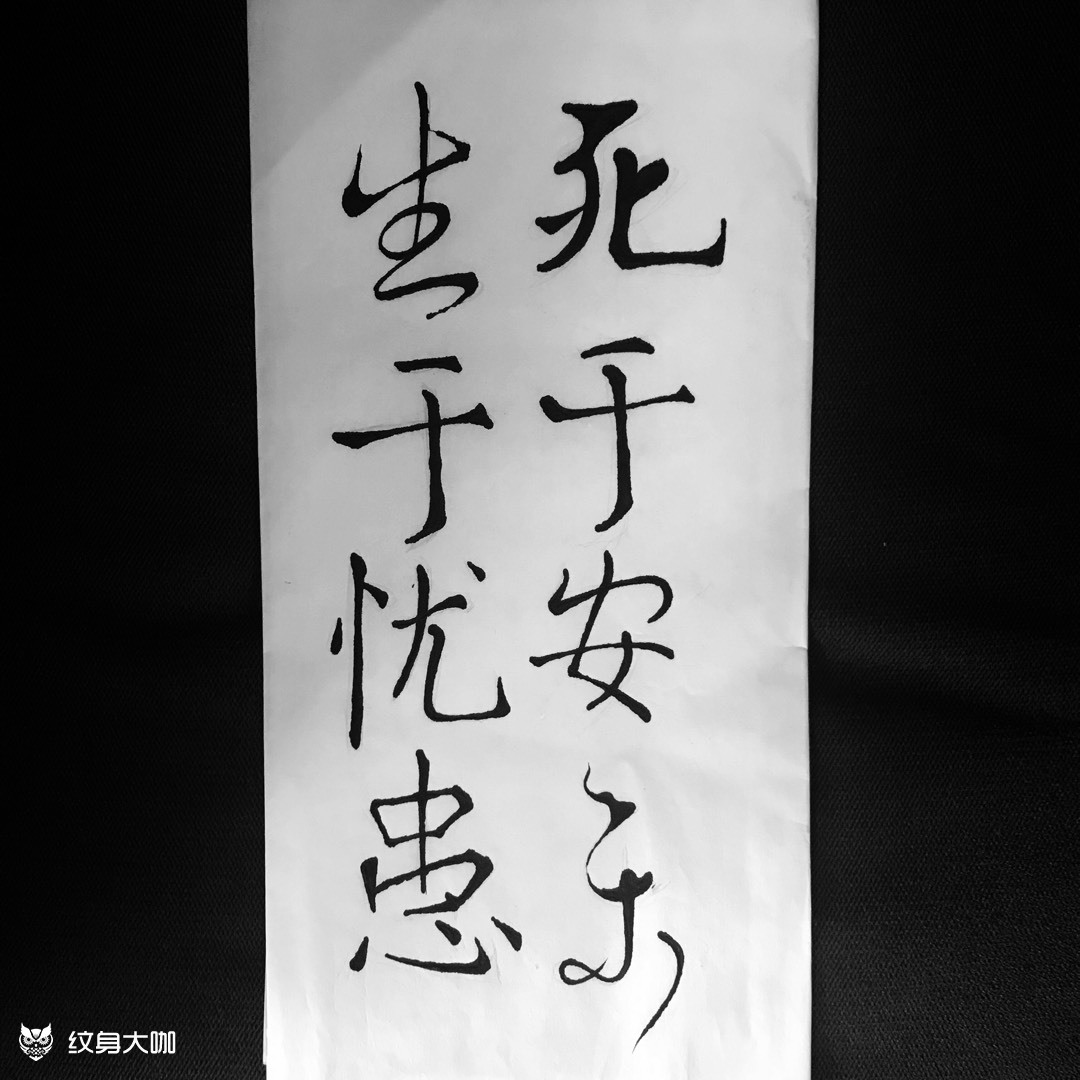 生于忧患
死于安乐
纹身大咖